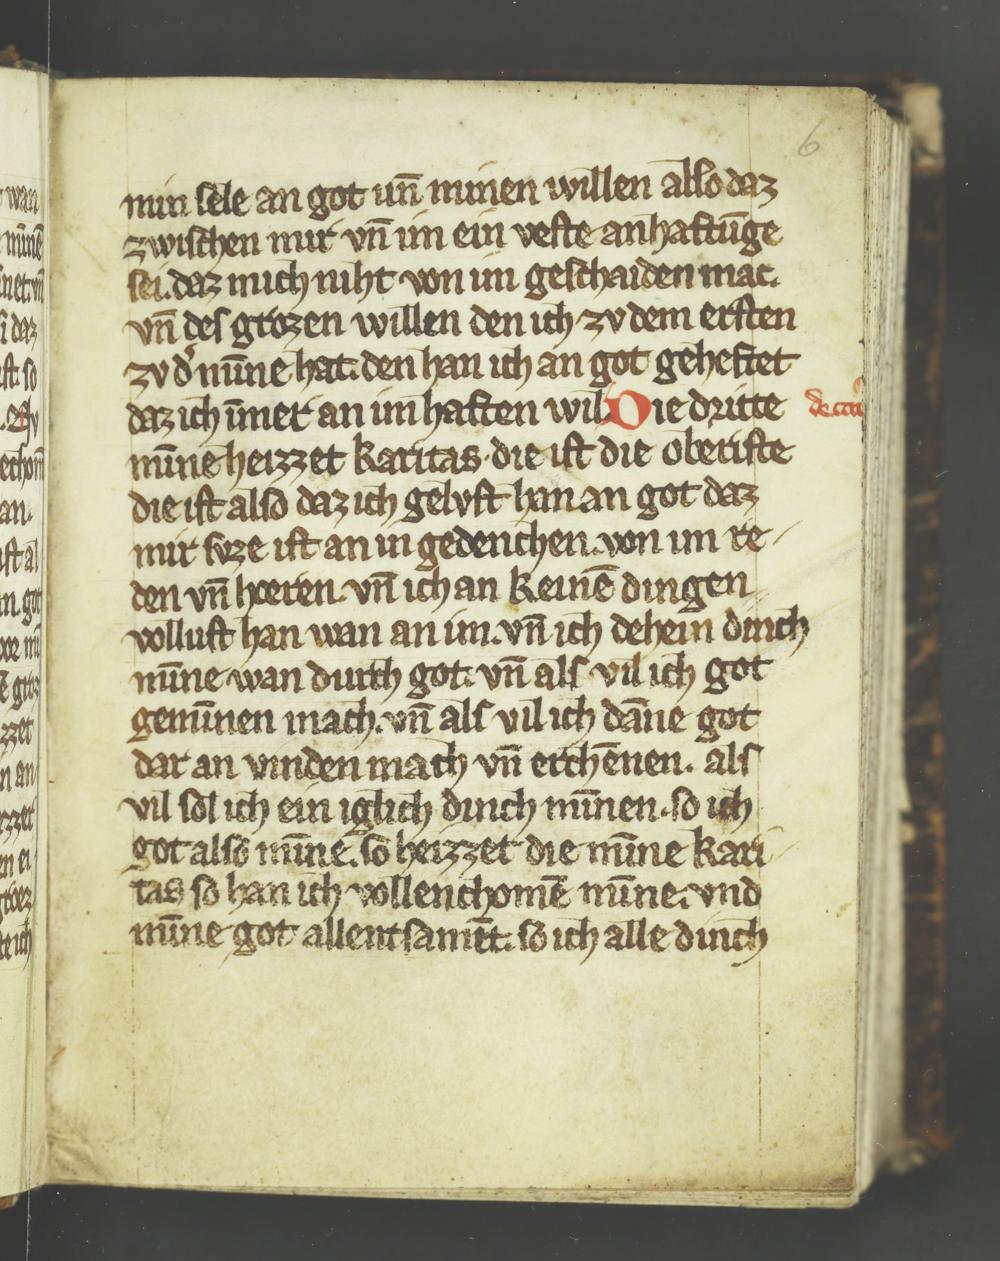 6
min sele an got un̄ minen willen also daz
zwischen mir vn̄ im ein veste anhaftūge
sei. daz mich niht von im geschaiden mac.
vn̄ des grozen willen den ich zv dem ersten
zv d' mīne hat. den han ich an got geheftet
daz ich īmer an im haften wil. Die dritte
mīne heizzet karitas. die ist die oberiste
die ist also daz ich gelvst han an got daz
mir svze ist an in gedenchen. von im re-
den vn̄ hoeren. vn̄ ich an keinē dingen
vollust han wan an im. vn̄ ich dehein dinch
mīne wan durch got. vn̄ als vil ich got
gemīnen mach. vn̄ als vil ich dāne got
dar an vinden mach vn̄ erchēnen. als
vil sol ich ein iglich dinch mīnen. so ich
got also mīne. so heizzet die mīne kari
tas so han ich vollenchomē mīne. vnd
mīne got allentsamēt. so ich alle dinch